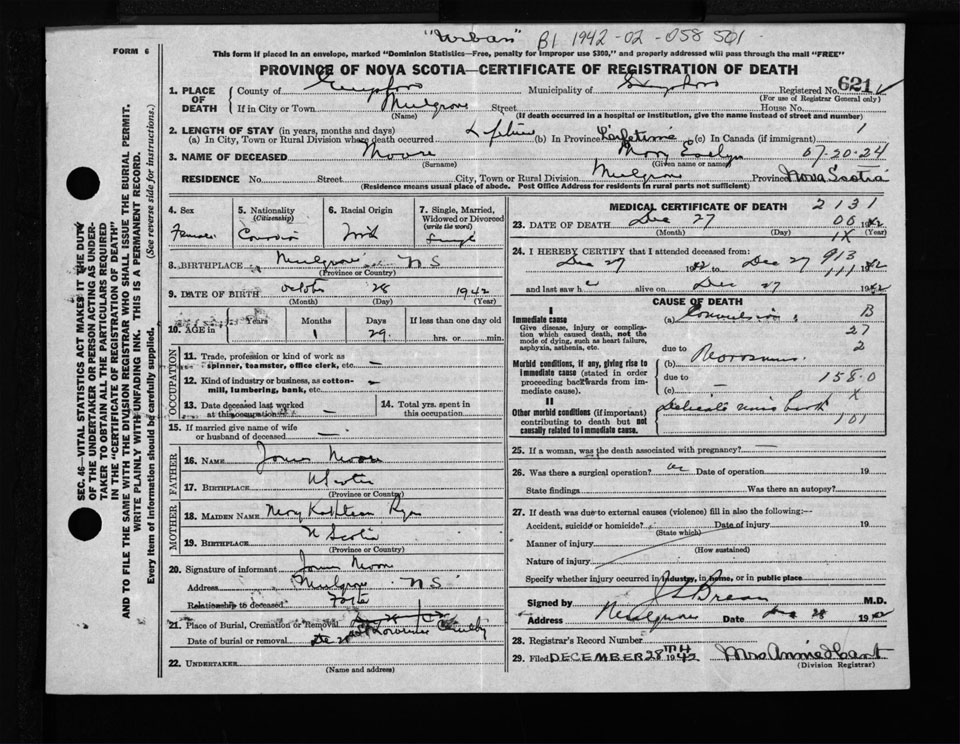 "Urban" B1 1942-02-058501
FORM 6
This form if placed in an envelope, marked "Dominion Statistics—Free, penalty for improper use $300," and properly addressed will pass through the mail "FREE"
PROVINCE OF NOVA SCOTIA—CERTIFICATE OF REGISTRATION OF DEATH
SEC. 46—VITAL STATISTICS ACT MAKES IT THE DUTY
OF THE UNDERTAKER OR PERSON ACTING AS UNDER-
TAKER TO OBTAIN ALL THE PARTICULARS REQUIRED
IN THE "CERTIFICATE OF REGISTRATION OF DEATH"
AND TO FILE THE SAME WITH THE DIVISION REGISTRAR WHO SHALL ISSUE THE BURIAL PERMIT.
WRITE PLAINLY WITH UNFADING INK. THIS IS A PERMANENT RECORD.
Every item of information should be carefully supplied. (See reverse side for instructions.)
1. PLACE OF DEATH
County of Guysboro Municipality of Guysboro Registered No. 621
(For use of Registrar General only)
If in City or Town Mulgrave Street House No.
(Name) (If death occurred in a hospital or institution, give the name instead of street and number)
2. LENGTH OF STAY (in years, months and days)
(a) In City, Town or Rural Division where death occurred Lifetime (b) In Province Lifetime (c) In Canada (if immigrant) 1
3. NAME OF DECEASED Moore Mary Evelyn 07-20-24
(Surname) (Given name or names)
RESIDENCE No. Street City, Town or Rural Division Mulgrave Province Nova Scotia
(Residence means usual place of abode. Post Office Address for residents in rural parts not sufficient)
4. Sex Female
5. Nationality (Citizenship) Canadian
6. Racial Origin Irish
7. Single, Married, Widowed or Divorced (write the word) Single
8. BIRTHPLACE Mulgrave N S
(Province or Country)
9. DATE OF BIRTH October 28 1942
(Month) (Day) (Year)
10. AGE in Years Months Days If less than one day old
1 29 hrs. or min.
OCCUPATION
11. Trade, profession or kind of work as spinner, teamster, office clerk, etc. —
12. Kind of industry or business, as cotton-mill, lumbering, bank, etc. —
13. Date deceased last worked at this occupation —
14. Total yrs. spent in this occupation
15. If married give name of wife or husband of deceased —
FATHER
16. NAME James Moore
17. BIRTHPLACE N Scotia
(Province or Country)
MOTHER
18. MAIDEN NAME Mary Kathleen Ryan
19. BIRTHPLACE N Scotia
(Province or Country)
20. Signature of informant James Moore
Address Mulgrave N S
Relationship to deceased Father
21. Place of Burial, Cremation or Removal
Date of burial or removal
22. UNDERTAKER
(Name and address)
MEDICAL CERTIFICATE OF DEATH 2131
23. DATE OF DEATH Dec 27 1942
(Month) (Day) (Year)
24. I HEREBY CERTIFY that I attended deceased from:
Dec 27 1942 to Dec 27 1942
and last saw h alive on Dec 27 1942
CAUSE OF DEATH
I
Immediate cause
Give disease, injury or complication which caused death, not the mode of dying, such as heart failure, asphyxia, asthenia, etc.
(a) Convulsions B
27
due to 2
Morbid conditions, if any, giving rise to immediate cause (stated in order proceeding backwards from immediate cause).
(b)
due to 158-0
(c) X
II
Other morbid conditions (if important) contributing to death but not causally related to immediate cause.
Delicate since birth
101
25. If a woman, was the death associated with pregnancy? —
26. Was there a surgical operation? no Date of operation 19
State findings Was there an autopsy?
27. If death was due to external causes (violence) fill in also the following:—
Accident, suicide or homicide? Date of injury 19
(State which)
Manner of injury
(How sustained)
Nature of injury
Specify whether injury occurred in industry, in home, or in public place
Signed by J S Brean M.D.
Address Mulgrave Date Dec 28 1942
28. Registrar's Record Number
29. Filed DECEMBER 28TH 1942 Mrs Annie Hart
(Division Registrar)